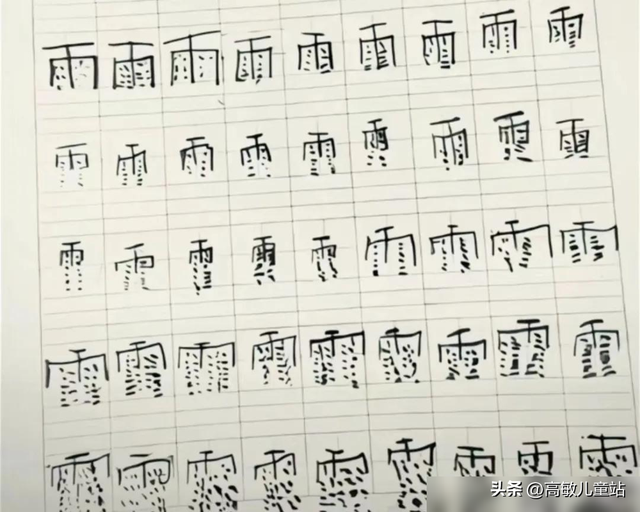 雨雨雨雨雨雨雨雨雨
雨雨雨雨雨雨雨雨雨
雨雨雨雨雨雨雨雨雨
雨雨雨雨雨雨雨雨雨
雨雨雨雨雨雨雨雨雨
头条 @高敏儿童站